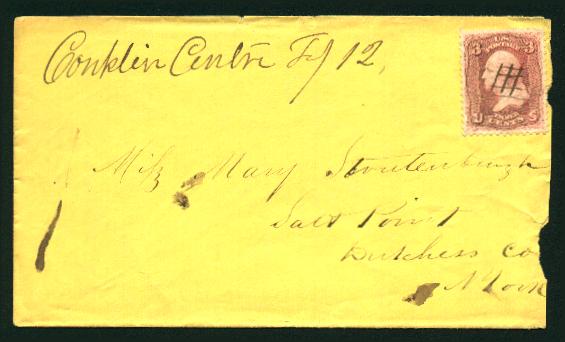 Conklin Centre Fy 12,
3 U.S. 3
POSTAGE
THREE
U CENTS S
Miss Mary Stoutenburgh
Salt Point
Dutchess Co
N York